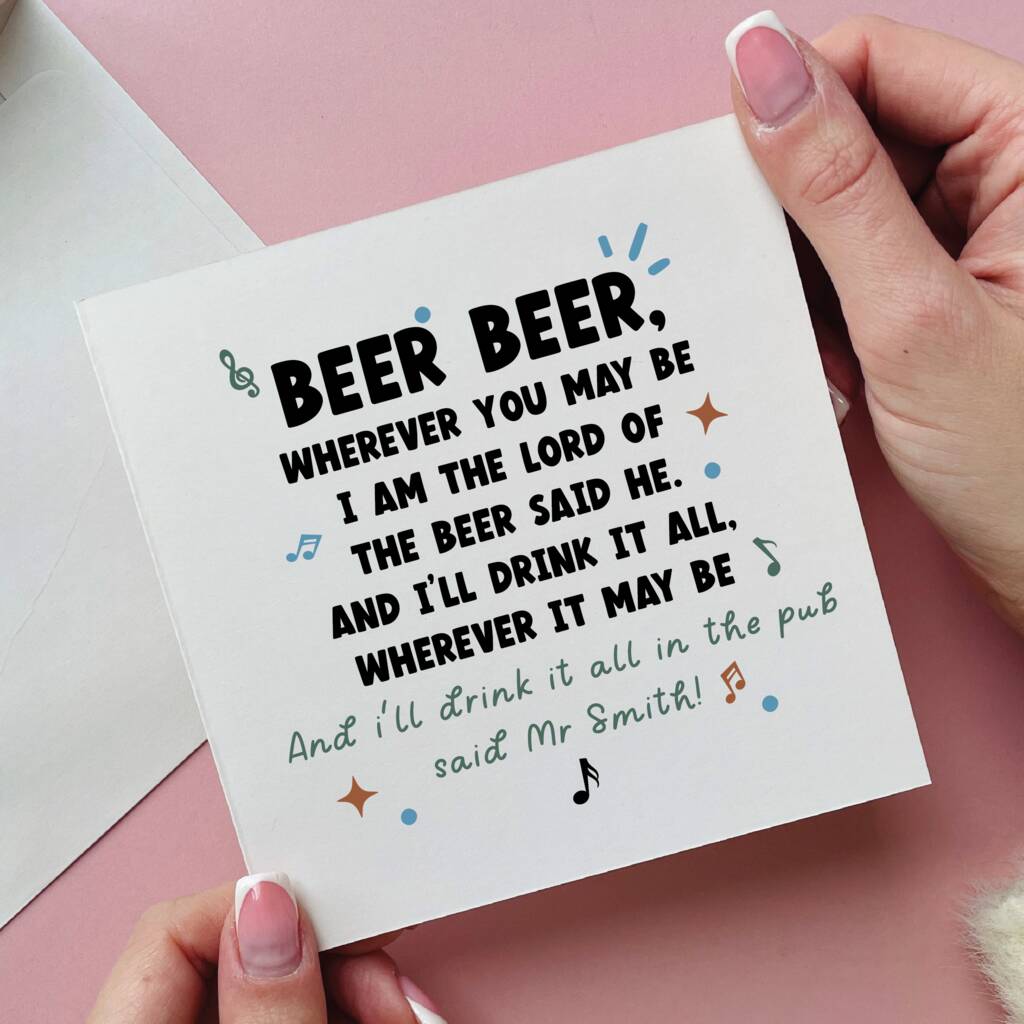 BEER BEER,
WHEREVER YOU MAY BE
I AM THE LORD OF
THE BEER SAID HE.
AND I'LL DRINK IT ALL,
WHEREVER IT MAY BE
And i'll drink it all in the pub
said Mr Smith!